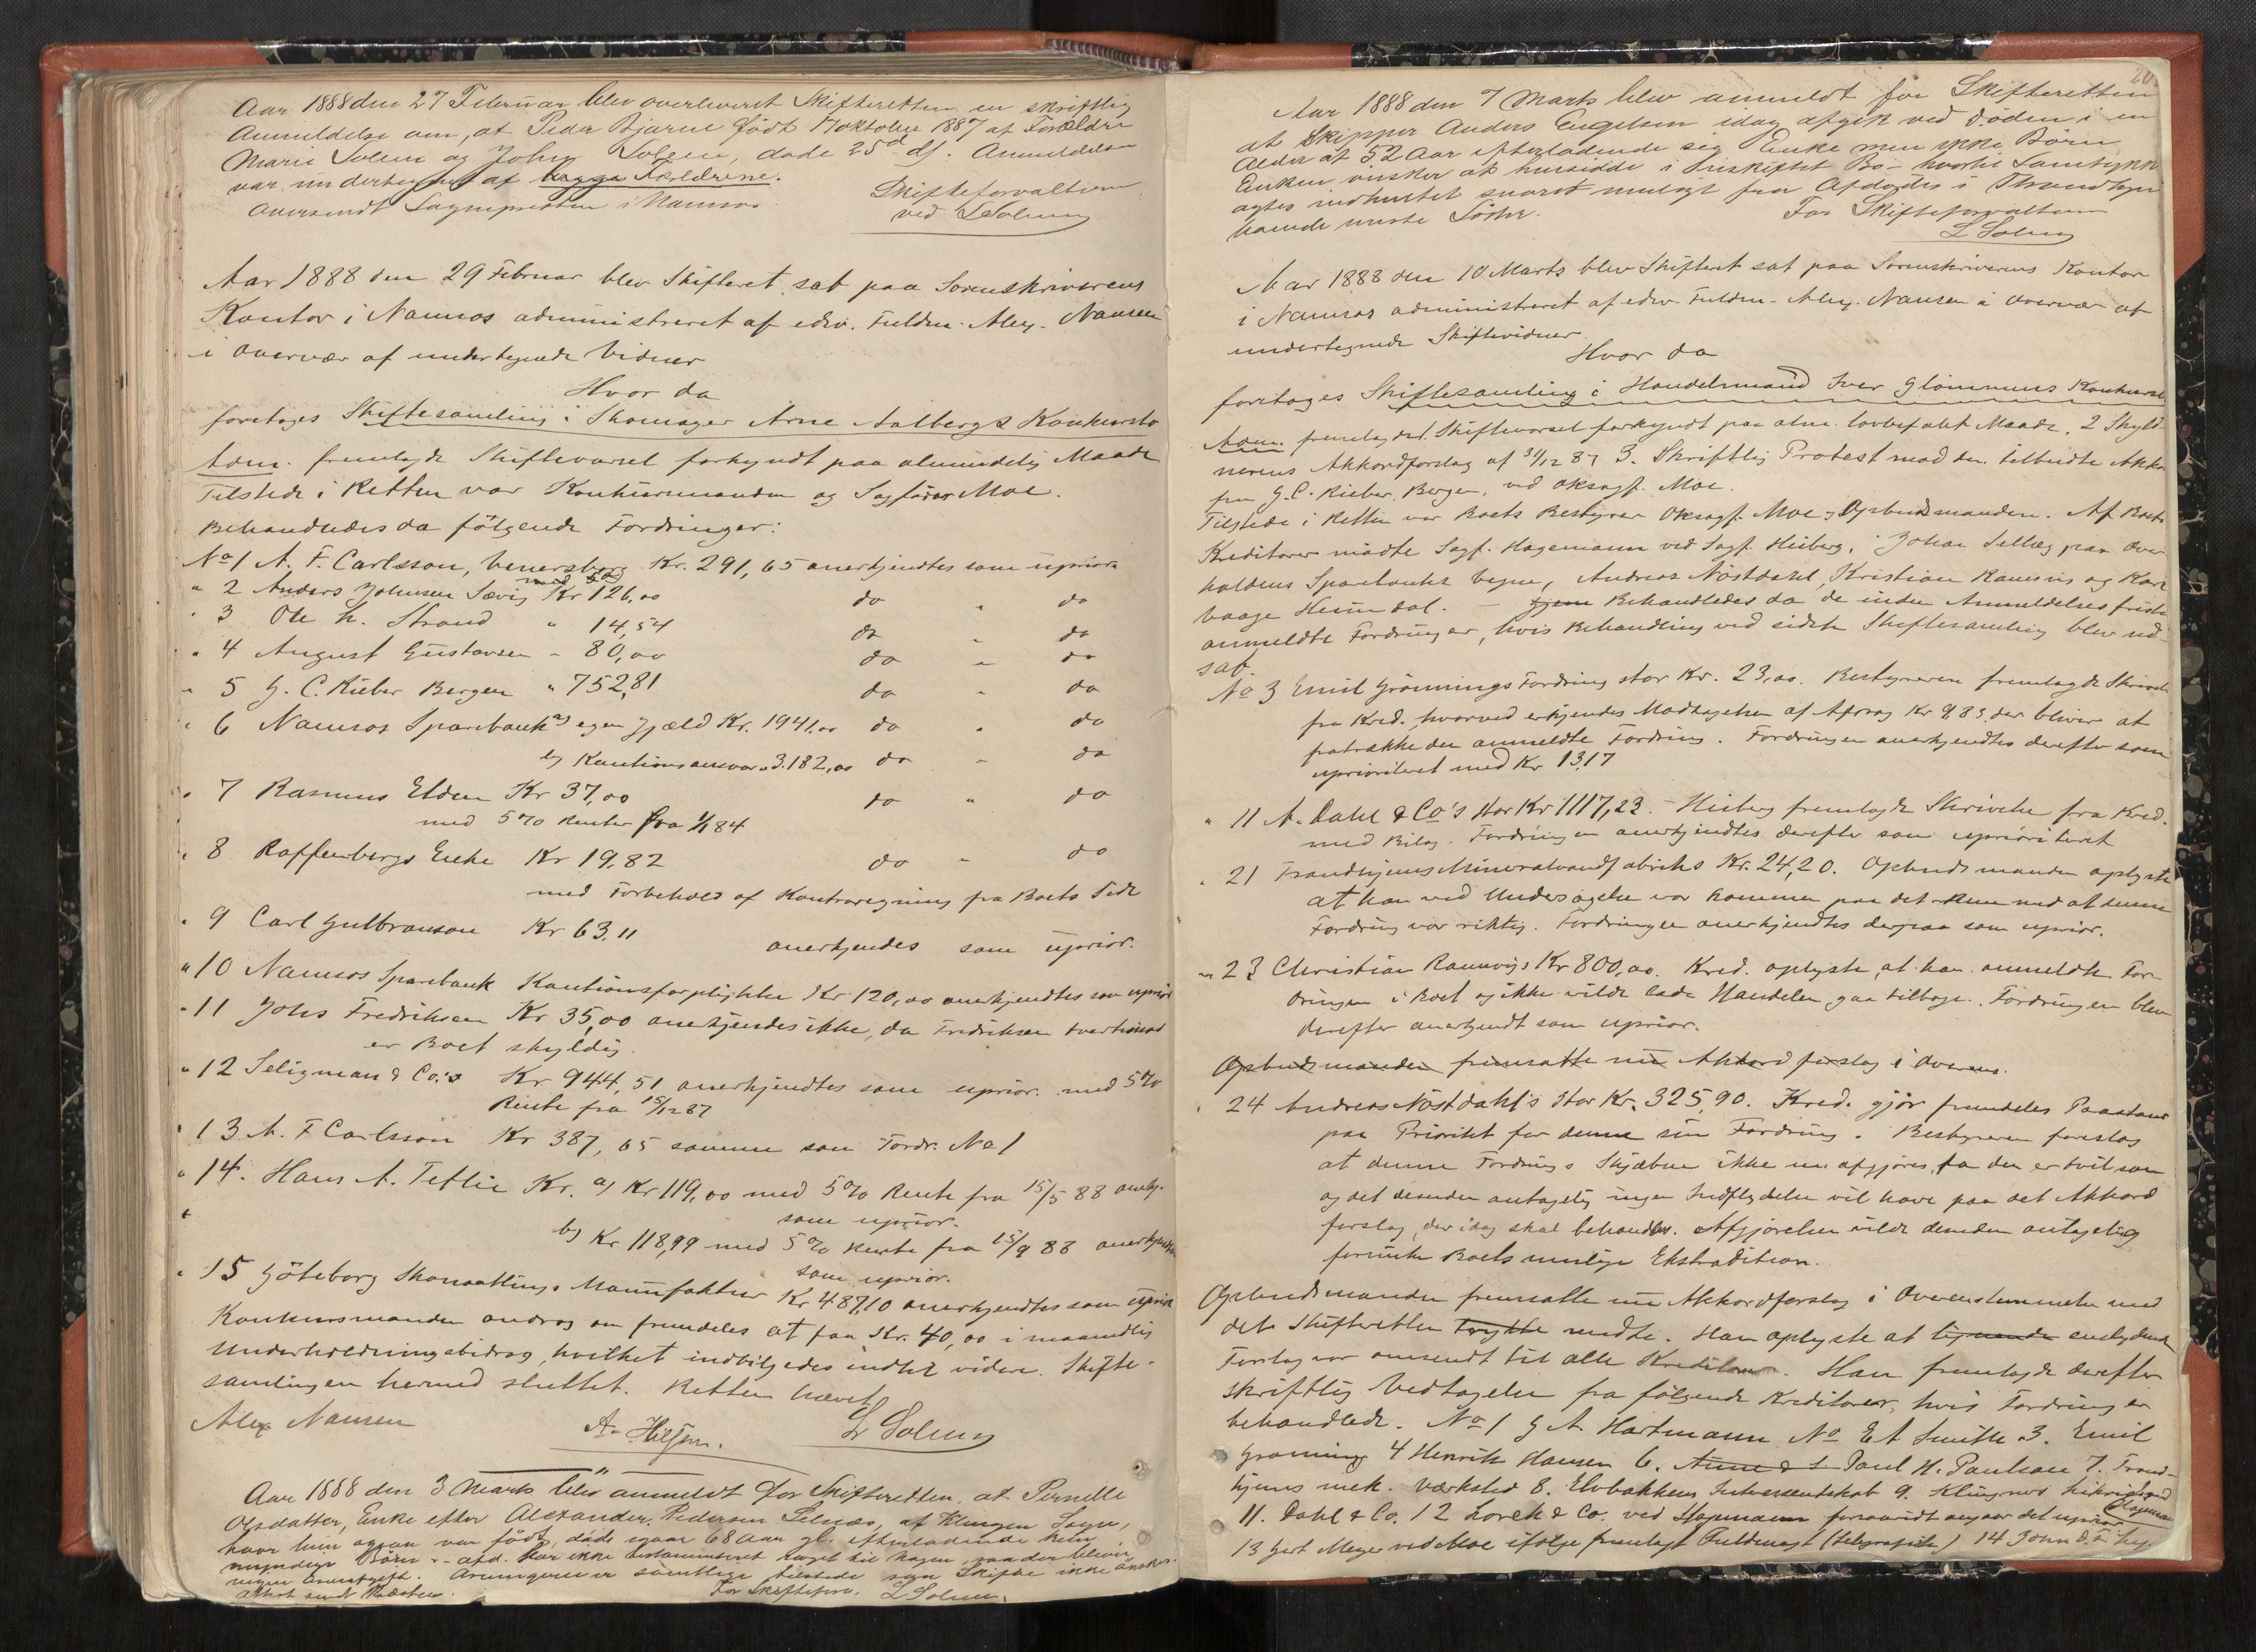 Aar 1888 den 27 Februar blev overleveret Skifteretten en skriftlig
Anmeldelse om, at Peder Bjarne født 17 oktober 1887 af Forældre
Marie Solem og Johan Solem, døde 25d ds. Anmeldelsen
var undertegnet af begge Forældrene.
Oversendt Sognepresten i Namsos.
Skifteforvalteren
ved L Solum
Aar 1888 den 29 Februar blev Skifteret sat paa Sorenskriverens
Kontor i Namsos administreret af edsv. Fuldm. Alex. Nansen
i Overvær af undertegnede Vidner
Hvor da
foretoges Skiftesamling i Skomager Arne Aalbergs Konkursbo
Adm. fremlagde Skiftevarsel forkyndt paa almindelig Maade
Tilstede i Retten var Konkursmanden og Sagfører Moe.
Behandledes da følgende Fordringer:
No 1 A. F. Carlsson, Venersborg Kr. 291,65 anerkjendtes som uprior.
" 2 Anders Johnsen Sævig Kr 126,00 do " do
" 3 Ole H. Strand " 14,54 do " do
" 4 August Gustavsen " 80,00 do " do
" 5 G. C. Rieber Bergen " 752,81 do " do
" 6 Namsos Sparebank a) egen Gjæld Kr. 1941,00 do " do
b) Kautionsansvar " 3.182,00 do " do
" 7 Rasmus Elden Kr 37,00 do " do
med 5% Renter fra 1/1 84
" 8 Roffenbergs Enke Kr 19,82 do " do
med Forbehold af Kontraregning fra Boets Side
" 9 Carl Gulbranson Kr 63,11 anerkjendes som uprior.
" 10 Namsos Sparebank Kautionsforpligtelse Kr 120,00 anerkjendtes som uprior
" 11 Johs Fredriksen Kr 35,00 anerkjendes ikke, da Fredriksen tvertimod
er Boet skyldig.
" 12 Seligman & Co.'s Kr 944,51 anerkjendtes som uprior. med 5%
Rente fra 15/12 87
" 13 A. F Carlsson Kr 387,65 samme som Fordr. No 1
" 14. Hans A. Teflie Kr. a) Kr 119,00 med 5% Rente fra 15/5 88 anerkj.
som uprior.
b) Kr 118,99 med 5% Rente fra 15/9 88 anerkjendtes
som uprior.
" 15 Göteborg Skomatlings Manufaktur Kr 487,10 anerkjendtes som uprior
Konkursmanden androg om fremdeles at faa Kr. 40,00 i maanedlig
Underholdningsbidrag, hvilket indvilgedes indtil videre. Skifte-
samlingen hermed sluttet. Retten hævet
Alex Nansen
A. Hilsen.
L Solum
Aar 1888 den 3 Marts blev anmeldt for Skifteretten, at Pernelle
Olsdatter, Enke efter Alexander Pedersen Selnæs, af Klingen Sogn,
hvor hun ogsaa var født, døde igaar 68 Aar gl. efterladende kun
myndige Børn. - afd. har ikke testamenteret noget saa der bliver
ingen Arveafgift. Arvingerne er samtlige tilstede saa Skifte ikke ønskes.
Attest sendt
For Skifteforv. L Solum.
20
Aar 1888 den 7 Marts blev anmeldt for Skifteretten
at Skipper Anders Engelsen idag afgik ved Døden i en
Alder af 52 Aar efterladende sig Enke men ikke Børn
Enken ønsker at hensidde i Uskiftet Bo - hvortil Samtykke
agtes indhentet snarest muligt fra Afdødes i Throndhjem
boende eneste Søster.
For Skifteforvalteren
L Solum
Aar 1888 den 10 Marts blev Skifteret sat paa Sorenskriverens Kontor
i Namsos administreret af edsv. Fuldm. Alex. Nansen i Overvær af
undertegnede Skiftevidner
Hvor da
foretoges Skiftesamling i Handelsmand Iver Glømmens Konkursbo
Adm. fremlagde 1. Skiftevarsel forkyndt paa alm. lovbefalet Maade, 2 Skyld-
nerens Akkordforslag af 31/12 87 3. Skriftlig Protest mod den tilbudte Akkord
fra G. C. Rieber, Bergen, ved Oksagf. Moe.
Tilstede i Retten var Boets Bestyrer Oksagf. Moe og Opbudsmanden. Af Boets
Kreditorer mødte Sagf. Hagemann ved Sagf. Heiberg, Johan Sellæg paa Over-
haldens Sparebanks Vegne, Andreas Nøstdahl, Kristian Ramsvis og Kor-
vaage Heimdal. - Behandledes da de inden Anmeldelsesfristen
anmeldte Fordringer, hvis Behandling ved sidste Skiftesamling blev ud-
sat.
No 3 Emil Grønnings Fordring stor Kr. 23,00. Bestyreren fremlagde Skrivelse
fra Kred. hvorved erkjendes Modtagelsen af Afdrag Kr 9,83, der bliver at
fratrække den anmeldte Fordring. Fordringen anerkjendtes derefter som
uprioriteret med Kr 13,17
" 11 A. Dahl & Co's stor Kr 1117,23 - Heiberg fremlagde Skrivelse fra Kred.
med Bilag. Fordringen anerkjendtes derefter som uprioriteret
" 21 Trondhjems Mineralvandfabriks Kr. 24,20. Opbudsmanden oplyste
at han ved Undersøgelse var kommen paa det Rene med at denne
Fordring var riktig. Fordringen anerkjendtes derpaa som uprior.
" 23 Christian Ramsvigs Kr 800,00. Kred. oplyste, at han anmeldte For-
dringen i Boet og ikke vilde lade Handelen gaa tilbage. Fordringen blev
derefter anerkjendt som uprior.
Opbudsmanden fremsatte nu Akkordforslag i Overens.
" 24 Andreas Nøstdahl's stor Kr. 325,90. Kred. gjør fremdeles Paastand
paa Prioritet for denne sin Fordring. Bestyreren foreslog
at denne Fordrings Skjæbne ikke nu afgjøres, da den er tvilsom
og det desuden antagelig ingen Indflydelse vil have paa det Akkord
forslag, der idag skal behandles. Afgjørelsen vilde desuden antagelig
forsinke Boets mulige Ekstradition.
Opbudsmanden fremsatte nu Akkordforslag i Overensstemmelse med
det Skifteretten trykte sendte. Han oplyste at lignende enslydende
Forslag var omsendt til alle Kreditorer. Han fremlagde derefter
skriftlig Vedtagelse fra følgende Kreditorer, hvis Fordringer
behandlede. No 1 G A Hartmann No E A Smith 3. Emil
Grønning 4 Henrik Hansen 6. Paul H. Paulsen 7. Trond-
hjems mek. Værksted 8. Elvebakkens Interessentskab 9.
11. Dahl & Co. 12 Lorck & Co. ved Hagemann forsaavidt angaar det uprior.
13 Gert Meyer ved Moe ifølge fremlagt Fuldmagt (telegrafisk) 14 John D.